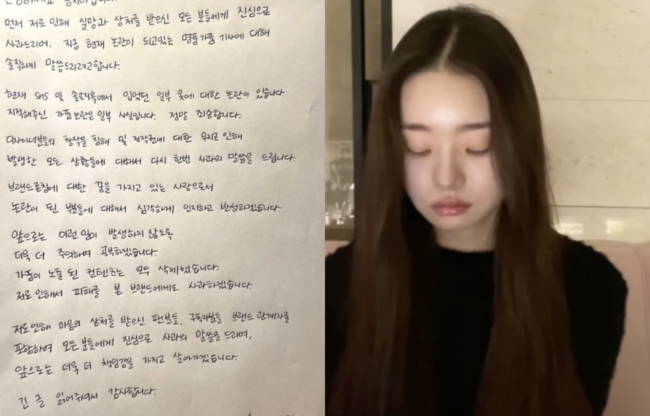 먼저 저로 인해 실망과 상처를 받으신 모든 분들에게 진심으로
사과드리며, 지금 현재 논란이 되고있는 명품가품 기사에 대해
솔직하게 말씀드리려고합니다.
현재 SNS 및 솔로지옥에서 입었던 일부 옷에 대한 논란이 있습니다
지적해주신 가품논란은 일부 사실입니다. 정말 죄송합니다.
디자이너분들의 창작물 침해 및 저작권에 대한 무지로 인해
발생한 모든 상황들에 대해서 다시 한번 사과의 말씀을 드립니다.
브랜드론칭에 대한 꿈을 가지고 있는 사람으로서
논란이 된 부분들에 대해서 심각하게 인지하고 반성하겠습니다.
앞으로는 이런 일이 발생하지 않도록
더욱 더 주의하며 공부하겠습니다.
가품이 노출 된 컨텐츠는 모두 삭제했습니다.
저로 인해서 피해를 본 브랜드에게도 사과하겠습니다.
저로인해 마음의 상처를 받으신 팬분들, 구독자분들 브랜드 관계자를
포함하여 모든분들에게 진심으로 사과의 말씀을 드리며,
앞으로는 더욱 더 책임감을 가지고 살아가겠습니다.
긴 글 읽어주셔서 감사합니다.